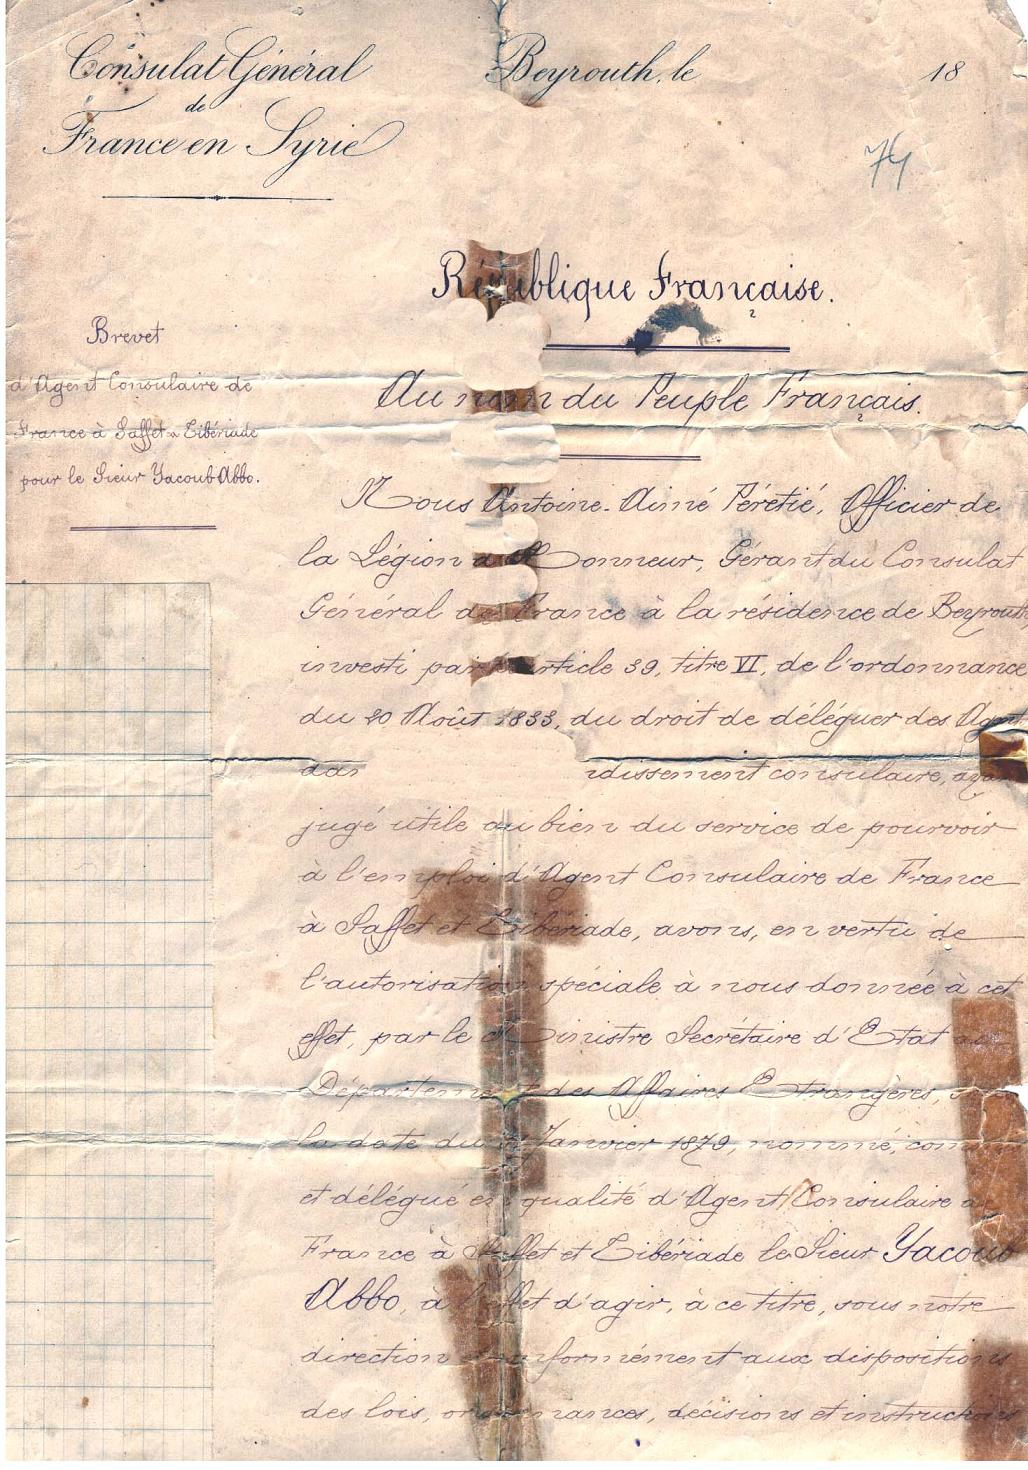 Consulat Général
de
France en Syrie
Beyrouth, le 18
74
République Française.
Au nom du Peuple Français.
Brevet
d'Agent Consulaire de
France à Saffet & Tibériade
pour le Sieur Yacoub Abbo.
Nous Antoine-Aimé Pérétié, Officier de
la Légion d'Honneur, Gérant du Consulat
Général de France à la résidence de Beyrouth
investi par article 39, titre VI, de l'ordonnance
du 20 Août 1833, du droit de déléguer des Agent
dan dissement consulaire, ayan
jugé utile au bien du service de pourvoir
à l'emploi d'Agent Consulaire de France
à Saffet et Tibériade, avons, en vertu de
l'autorisation spéciale à nous donnée à cet
effet, par le Ministre Secrétaire d'Etat au
Département des Affaires Etrangères, s
la date du Janvier 1879, nommé, com
et délégué en qualité d'Agent Consulaire de
France à Saffet et Tibériade le Sieur Yacoub
Abbo, à l'effet d'agir, à ce titre, sous notre
direction conformément aux dispositions
des lois, ordonnances, décisions et instructions